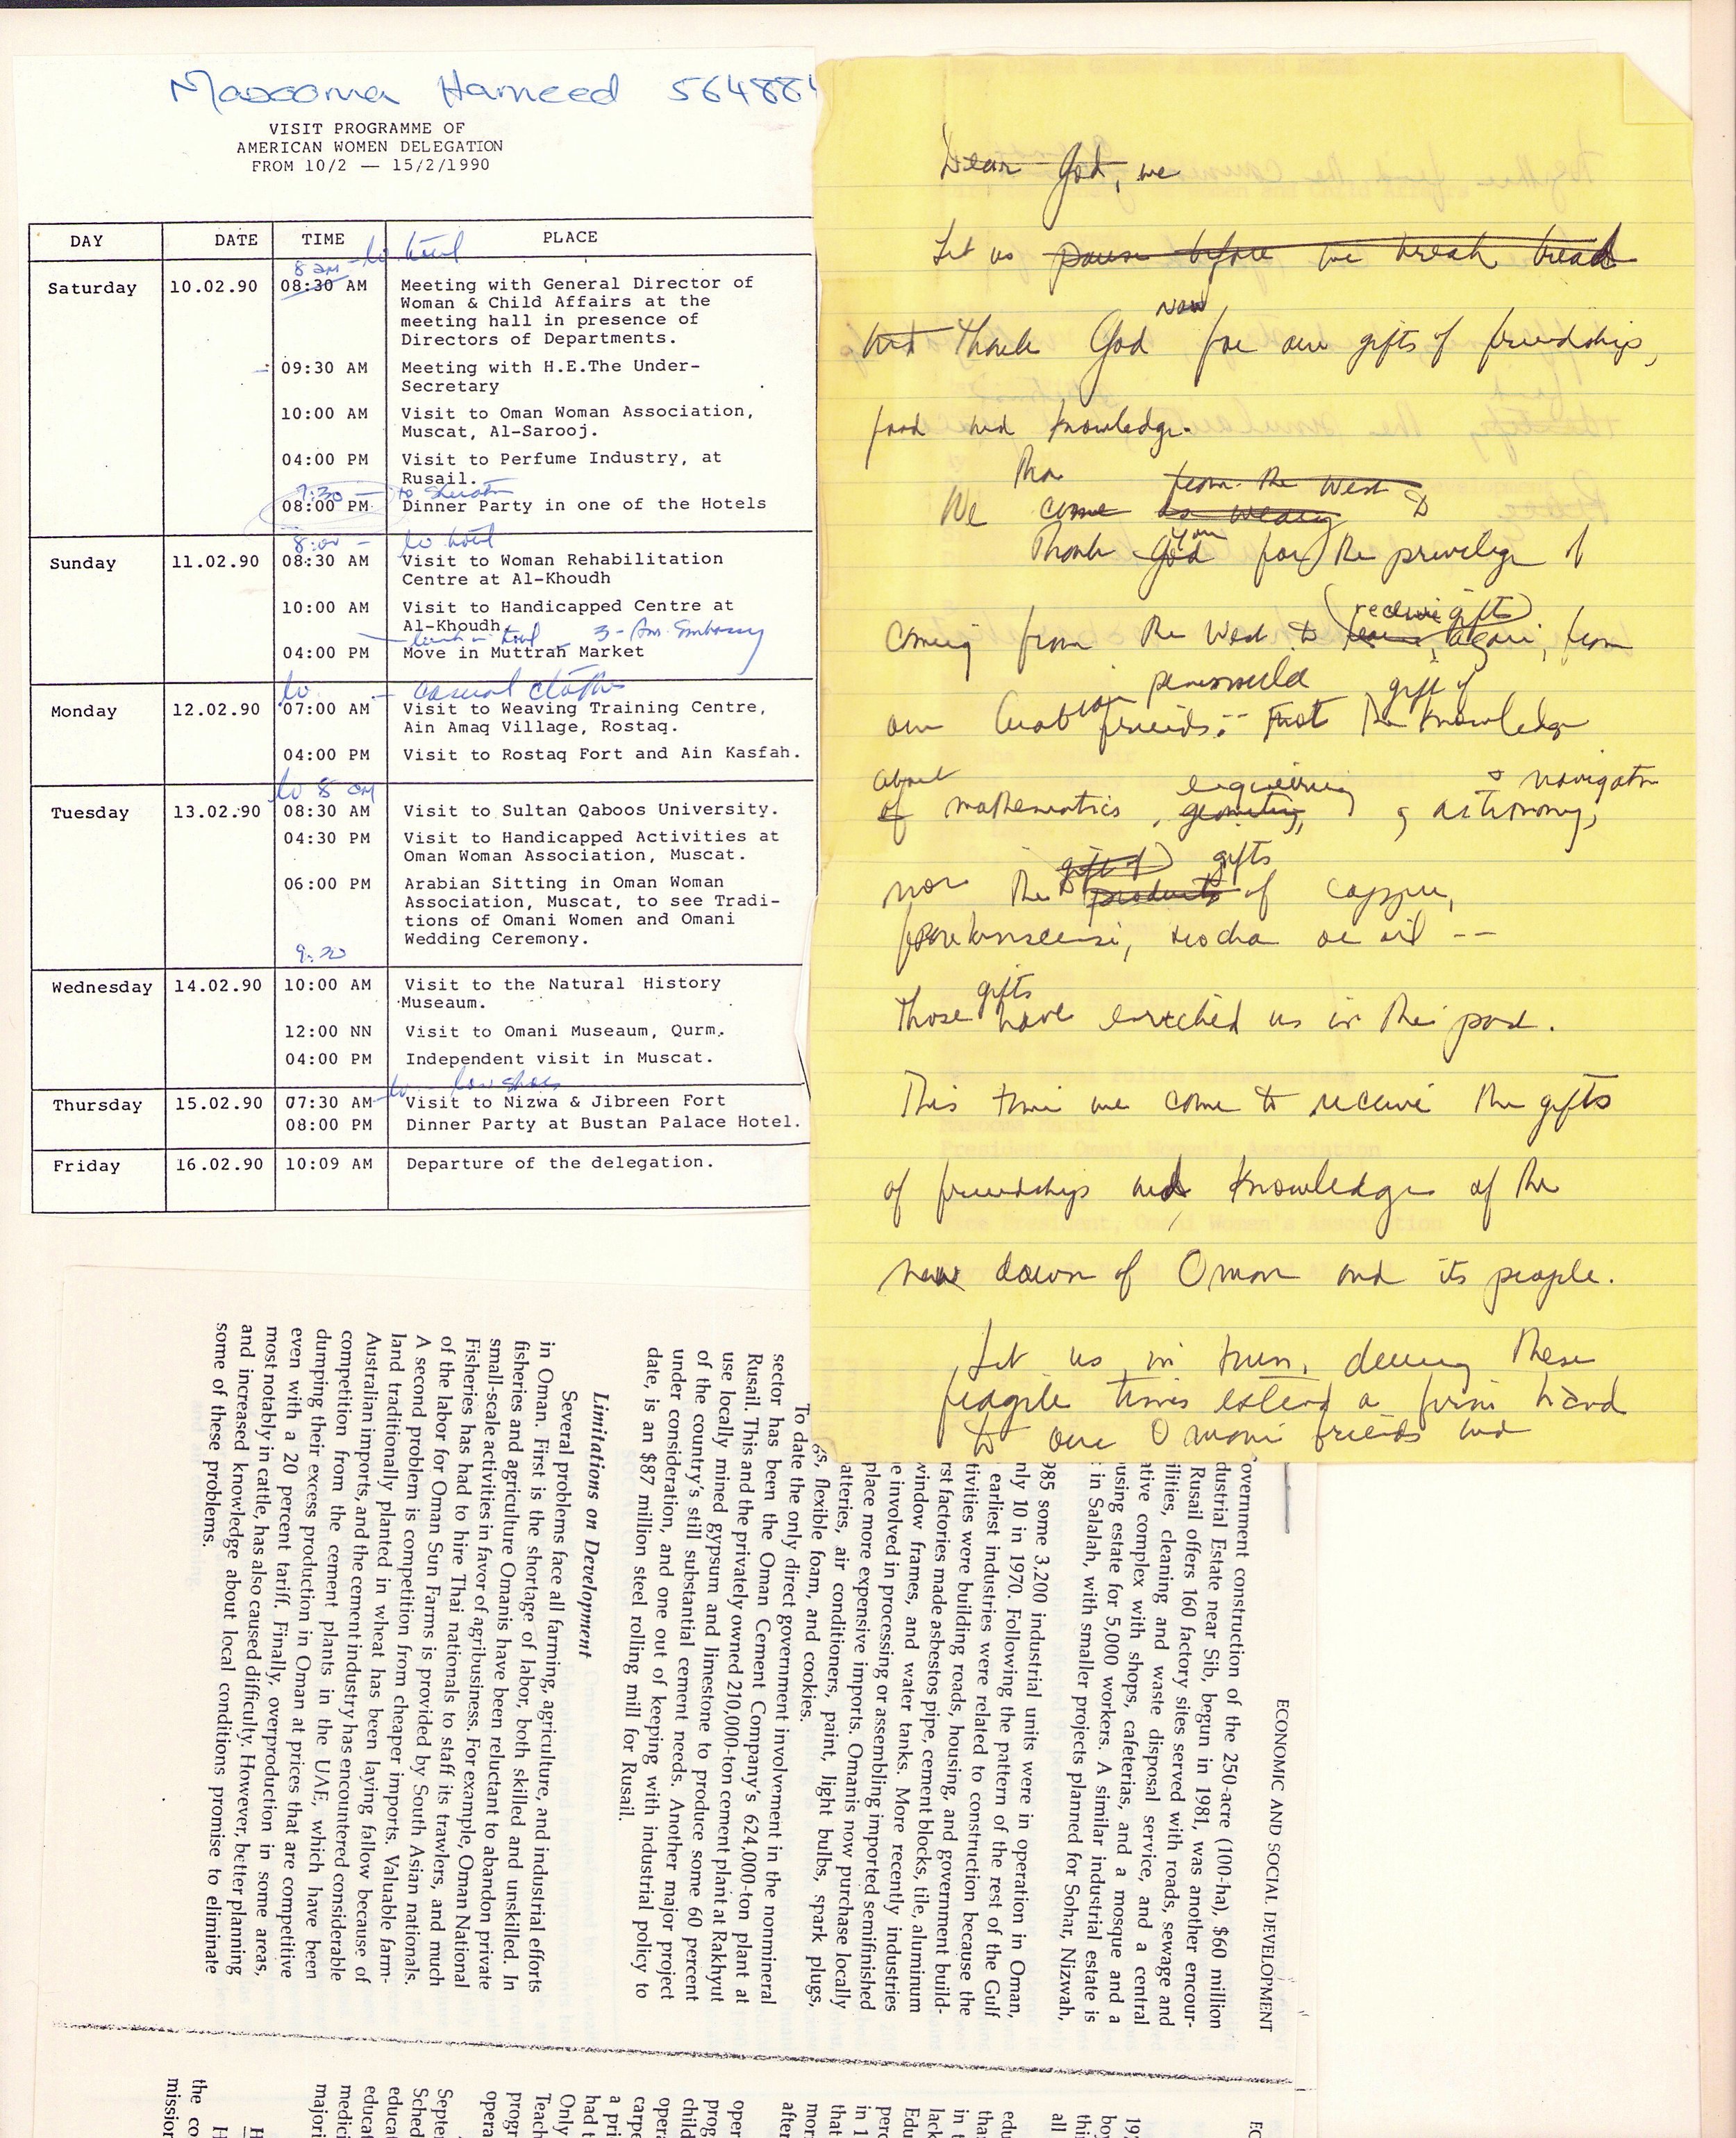 Masooma Hameed 564884
VISIT PROGRAMME OF
AMERICAN WOMEN DELEGATION
FROM 10/2 — 15/2/1990
DAY DATE TIME PLACE
8 am - lv hotel
Saturday 10.02.90 08:30 AM Meeting with General Director of
Woman & Child Affairs at the
meeting hall in presence of
Directors of Departments.
09:30 AM Meeting with H.E.The Under-
Secretary
10:00 AM Visit to Oman Woman Association,
Muscat, Al-Sarooj.
04:00 PM Visit to Perfume Industry, at
Rusail.
7:30 — to Sheraton
08:00 PM Dinner Party in one of the Hotels
8:00 — lv hotel
Sunday 11.02.90 08:30 AM Visit to Woman Rehabilitation
Centre at Al-Khoudh
10:00 AM Visit to Handicapped Centre at
Al-Khoudh.
— lunch in hotel 3 - Am. Embassy
04:00 PM Move in Muttrah Market
lv — casual clothes
Monday 12.02.90 07:00 AM Visit to Weaving Training Centre,
Ain Amaq Village, Rostaq.
04:00 PM Visit to Rostaq Fort and Ain Kasfah.
lv 8 am
Tuesday 13.02.90 08:30 AM Visit to Sultan Qaboos University.
04:30 PM Visit to Handicapped Activities at
Oman Woman Association, Muscat.
06:00 PM Arabian Sitting in Oman Woman
Association, Muscat, to see Tradi-
tions of Omani Women and Omani
Wedding Ceremony.
9:30
Wednesday 14.02.90 10:00 AM Visit to the Natural History
Museaum.
12:00 NN Visit to Omani Museaum, Qurm.
04:00 PM Independent visit in Muscat.
lv - low shoes
Thursday 15.02.90 07:30 AM Visit to Nizwa & Jibreen Fort
08:00 PM Dinner Party at Bustan Palace Hotel.
Friday 16.02.90 10:09 AM Departure of the delegation.
Dear God, we
Let us pause before we break bread
now
and thank God for our gifts of friendship,
food and knowledge.
from the West
We come as weary to
you
Thank God for the privilege of
receive gifts
coming from the West to learn, again, from
peninsula gift of
our Arabian friends: - not the knowledge
about engineering & navigation
of mathematics, geometry, astronomy,
gift of gifts
nor the products of copper,
frankincense, mocha or oil --
gifts
Those have enriched us in the past.
This time we come to receive the gifts
of friendship and knowledge of the
new dawn of Oman and its people.
Let us, in turn, during these
fragile times extend a firm hand
to our Omani friends and
ECONOMIC AND SOCIAL DEVELOPMENT
overnment construction of the 250-acre (100-ha), $60 million
dustrial Estate near Sib, begun in 1981, was another encour-
Rusail offers 160 factory sites served with roads, sewage and
ilities, cleaning and waste disposal service, and a central
ative complex with shops, cafeterias, and a mosque and a
using estate for 5,000 workers. A similar industrial estate is
in Salalah, with smaller projects planned for Sohar, Nizwah,
985 some 3,200 industrial units were in operation in Oman,
nly 10 in 1970. Following the pattern of the rest of the Gulf
earliest industries were related to construction because the
tivities were building roads, housing, and government build-
rst factories made asbestos pipe, cement blocks, tile, aluminum
window frames, and water tanks. More recently industries
e involved in processing or assembling imported semifinished
place more expensive imports. Omanis now purchase locally
atteries, air conditioners, paint, light bulbs, spark plugs,
gs, flexible foam, and cookies.
To date the only direct government involvement in the nonmineral
sector has been the Oman Cement Company's 624,000-ton plant at
Rusail. This and the privately owned 210,000-ton cement plant at Rakhyut
use locally mined gypsum and limestone to produce some 60 percent
of the country's still substantial cement needs. Another major project
under consideration, and one out of keeping with industrial policy to
date, is an $87 million steel rolling mill for Rusail.
Limitations on Development
Several problems face all farming, agriculture, and industrial efforts
in Oman. First is the shortage of labor, both skilled and unskilled. In
fisheries and agriculture Omanis have been reluctant to abandon private
small-scale activities in favor of agribusiness. For example, Oman National
Fisheries has had to hire Thai nationals to staff its trawlers, and much
of the labor for Oman Sun Farms is provided by South Asian nationals.
A second problem is competition from cheaper imports. Valuable farm-
land traditionally planted in wheat has been laying fallow because of
Australian imports, and the cement industry has encountered considerable
competition from the cement plants in the UAE, which have been
dumping their excess production in Oman at prices that are competitive
even with a 20 percent tariff. Finally, overproduction in some areas,
most notably in cattle, has also caused difficulty. However, better planning
and increased knowledge about local conditions promise to eliminate
some of these problems.